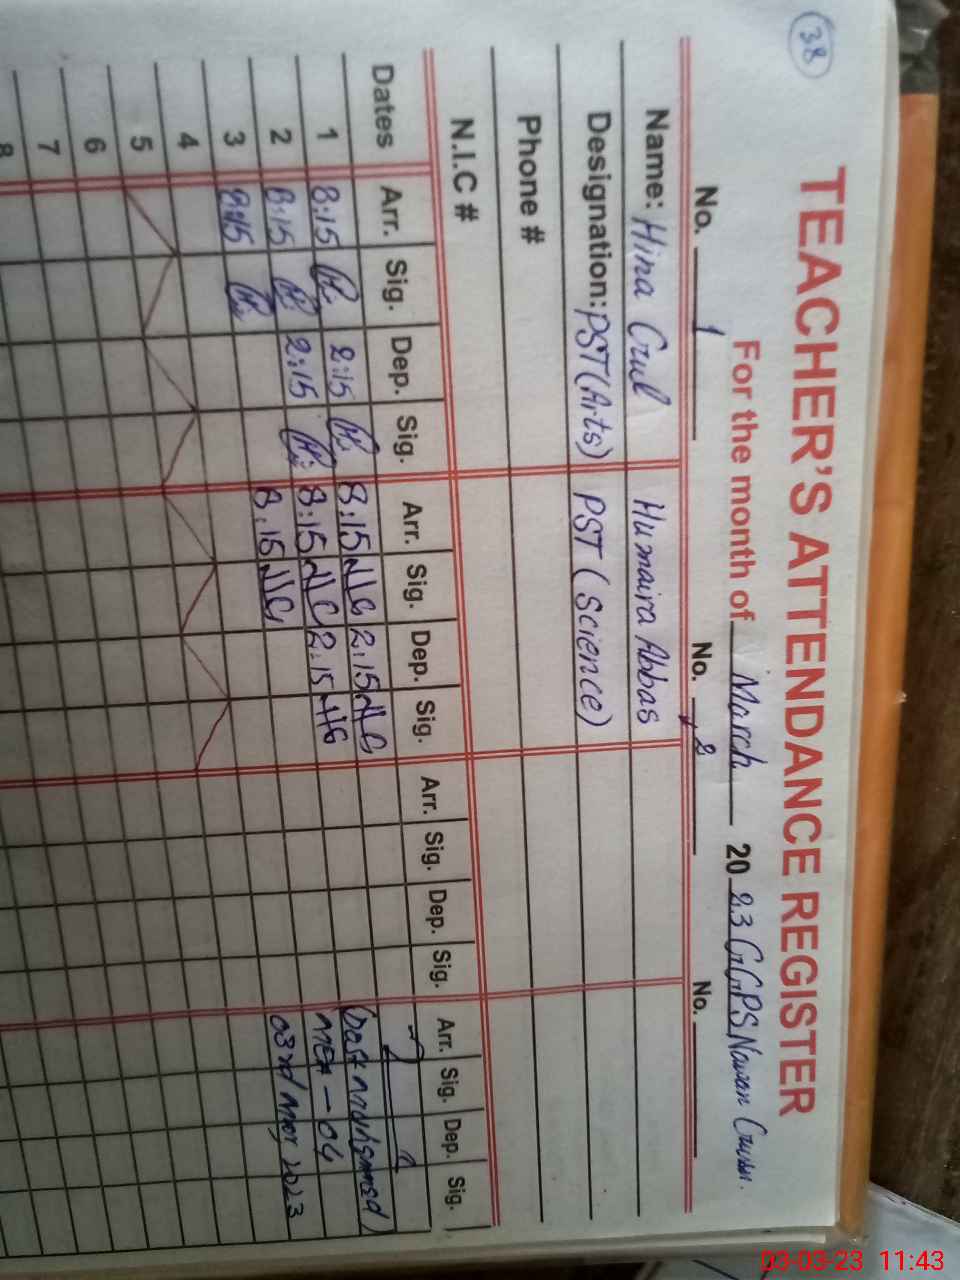 38
TEACHER'S ATTENDANCE REGISTER
For the month of March 2023 GGPS Nawan
No. 1 No. 2 No.
Name: Hina Gul Humaira Abbas
Designation: PST (Arts) PST (Science)
Phone #
N.I.C #
Dates Arr. Sig. Dep. Sig. Arr. Sig. Dep. Sig. Arr. Sig. Dep. Sig. Arr. Sig. Dep. Sig.
1 8:15 2:15 8:15 HG 2:15 HG
2 8:15 2:15 8:15 HG 2:15 HG MEA-04
3 8:15 8:15 HG 03rd Mar, 2023
4
5
6
7
8
03-03-23 11:43